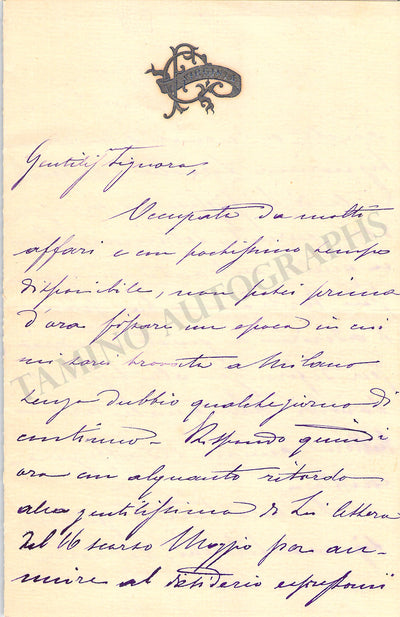 Gentilisma Signora,
Occupata da molti
affari e con pochissimo tempo
disponibile, non potei prima
d'ora fissare un epoca in cui
mi sarei trovata a Milano
senza dubbio qualche giorno di
continuo - Rispondo quindi
ora con alquanto ritardo
alla gentilissima di Lei lettera
del 16 scorso Maggio per an-
nuire al desiderio espressomi
TAMINO AUTOGRAPHS